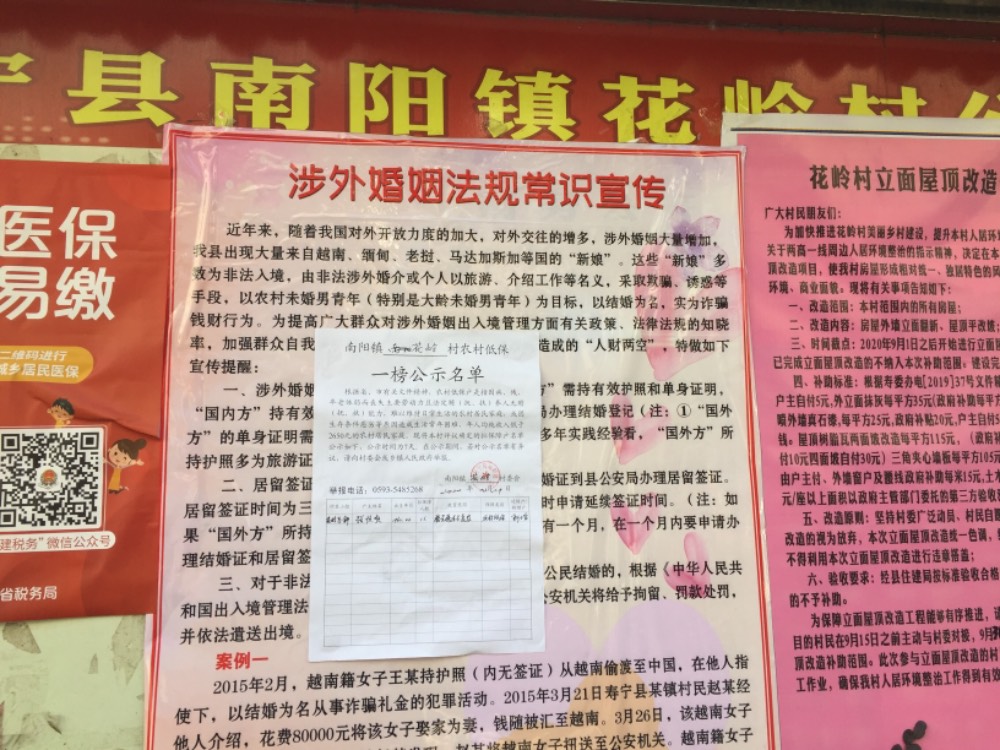 宁县南阳镇花岭村
医保
易缴
二维码进行
城乡居民医保
建税务"微信公众号
省税务局
涉外婚姻法规常识宣传
近年来，随着我国对外开放力度的加大，对外交往的增多，涉外婚姻大量增加，
我县出现大量来自越南、缅甸、老挝、马达加斯加等国的“新娘”。这些“新娘”多
数为非法入境，由非法涉外婚介或个人以旅游、介绍工作等名义，采取欺骗、诱惑等
手段，以农村未婚男青年（特别是大龄未婚男青年）为目标，以结婚为名，实为诈骗
钱财行为。为提高广大群众对涉外婚姻出入境管理方面有关政策、法律法规的知晓
率，加强群众自我
造成的“人财两空”，特做如下
宣传提醒：
一、涉外婚姻
方”需持有效护照和单身证明，
“国内方”持有效
局办理结婚登记（注：①“国外
方”的单身证明需
多年实践经验看，“国外方”所
持护照多为旅游证
二、居留签证
婚证到县公安局办理居留签证。
居留签证时间为三
时申请延续签证时间。（注：如
果“国外方”所持
有一个月，在一个月内要申请办
理结婚证和居留签
三、对于非法
公民结婚的，根据《中华人民共
和国出入境管理法
公安机关将给予拘留、罚款处罚，
并依法遣送出境。
案例一
2015年2月，越南籍女子王某持护照（内无签证）从越南偷渡至中国，在他人指
使下，以结婚为名从事诈骗礼金的犯罪活动。2015年3月21日寿宁县某镇村民赵某经
他人介绍，花费80000元将该女子娶家为妻，钱随被汇至越南。3月26日，该越南女子
赵某将越南女子扭送至公安机关。越南女子
南阳镇 花岭 村农村低保
一榜公示名单
2650元的农村居民家庭。
举报电话：0593-5485268
花岭村立面屋顶改造
广大村民朋友们：
为加快推进花岭村美丽乡村建设，提升本村人居环
关于两高一线周边人居环境整治的指示精神，决定在本
顶改造项目，使我村房屋形成相对统一、独居特色的
环境、商业面貌。现将有关事项告知如下：
一、改造范围：本村范围内的所有房屋；
二、改造内容：房屋外墙立面翻新、屋顶平改
三、时间截点：2020年9月1日之后开始进行立面
已完成立面屋顶改造的不纳入本次补助范围。
四、补助标准：根据寿委办电[2019]37号文件
户主自付5元，外立面抹灰每平方35元（政府补助每平方
喷外墙真石漆，每平方25元，政府补贴20元，户主自付5
钱。屋顶树脂瓦两面坡改造每平方115元，（政府
付10元四面坡自付30元）三角夹心墙板每平方105
由户主付、外墙窗户及腰线政府补助每米15元，土
元/座以上面积以政府主管部门委托的第三方验收
五、改造原则：坚持村委广泛动员，村民自
改造的视为放弃，本次立面屋顶改造统一色调，
不得利用本次立面屋顶改造进行违章搭盖；
六、验收要求：经县住建局按标准验收合格
的不予补助。
为保障立面屋顶改造工程能够有序推进，
目的村民在9月15日之前主动与村委对接，9月
顶改造补助范围。此次参与立面屋顶改造的村
工作业，确保我村人居环境整治工作得到有效